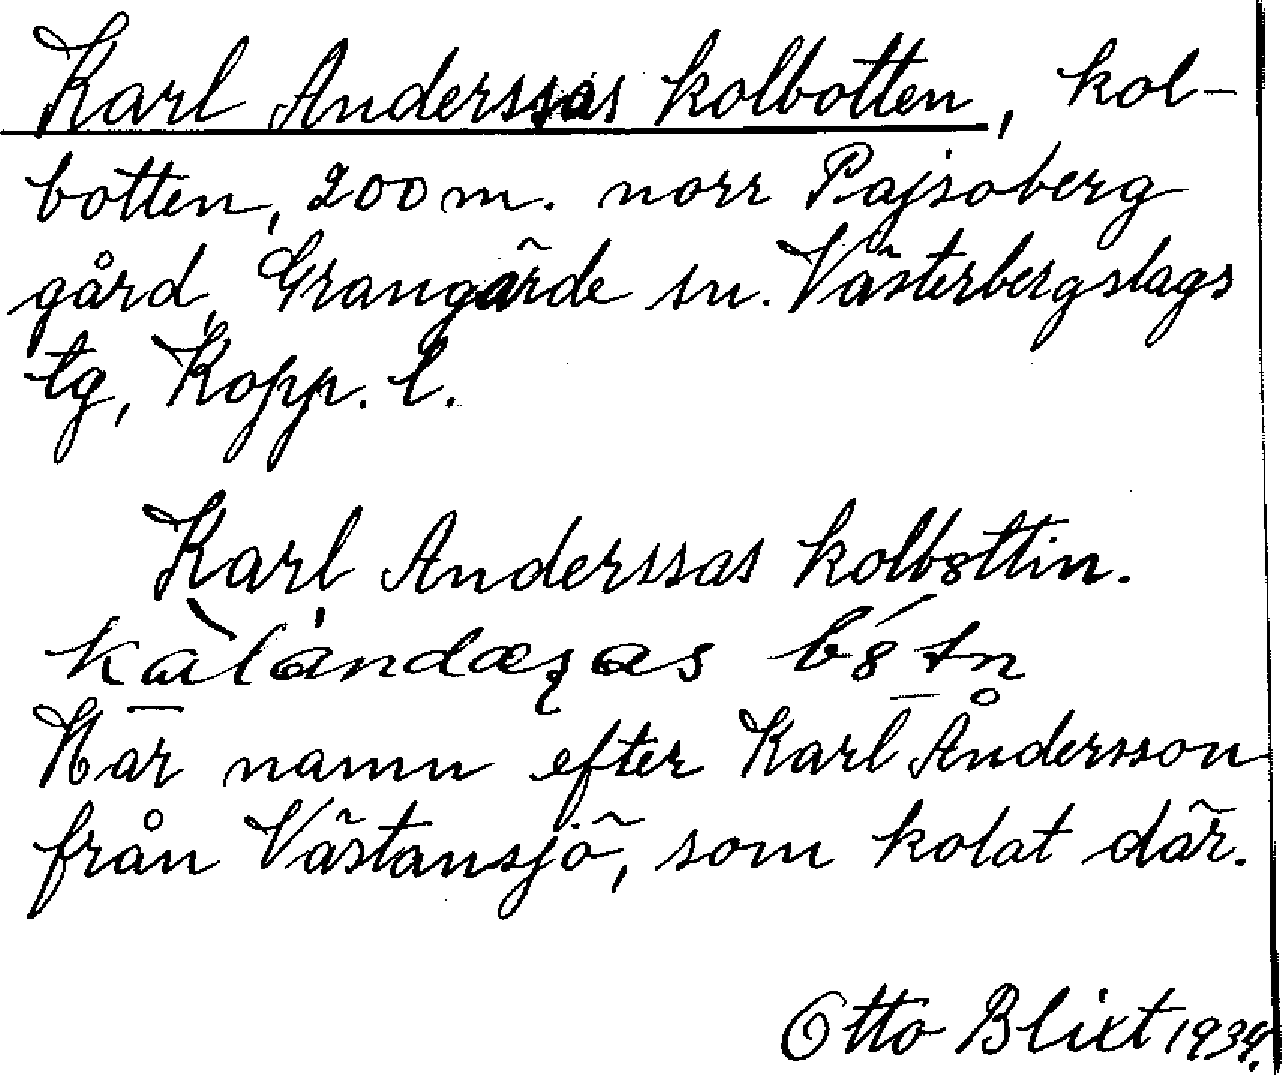 Karl Anderssas kolbotten, kol-
botten, 200 m. norr Pajsoberg
gård, Grangärde sn. Västerbergslags
tg, Kopp. l.
Karl Anderssas kolbottin.
Har namn efter Karl Andersson
från Västansjö, som kolat där.
Otto Blixt 1934.